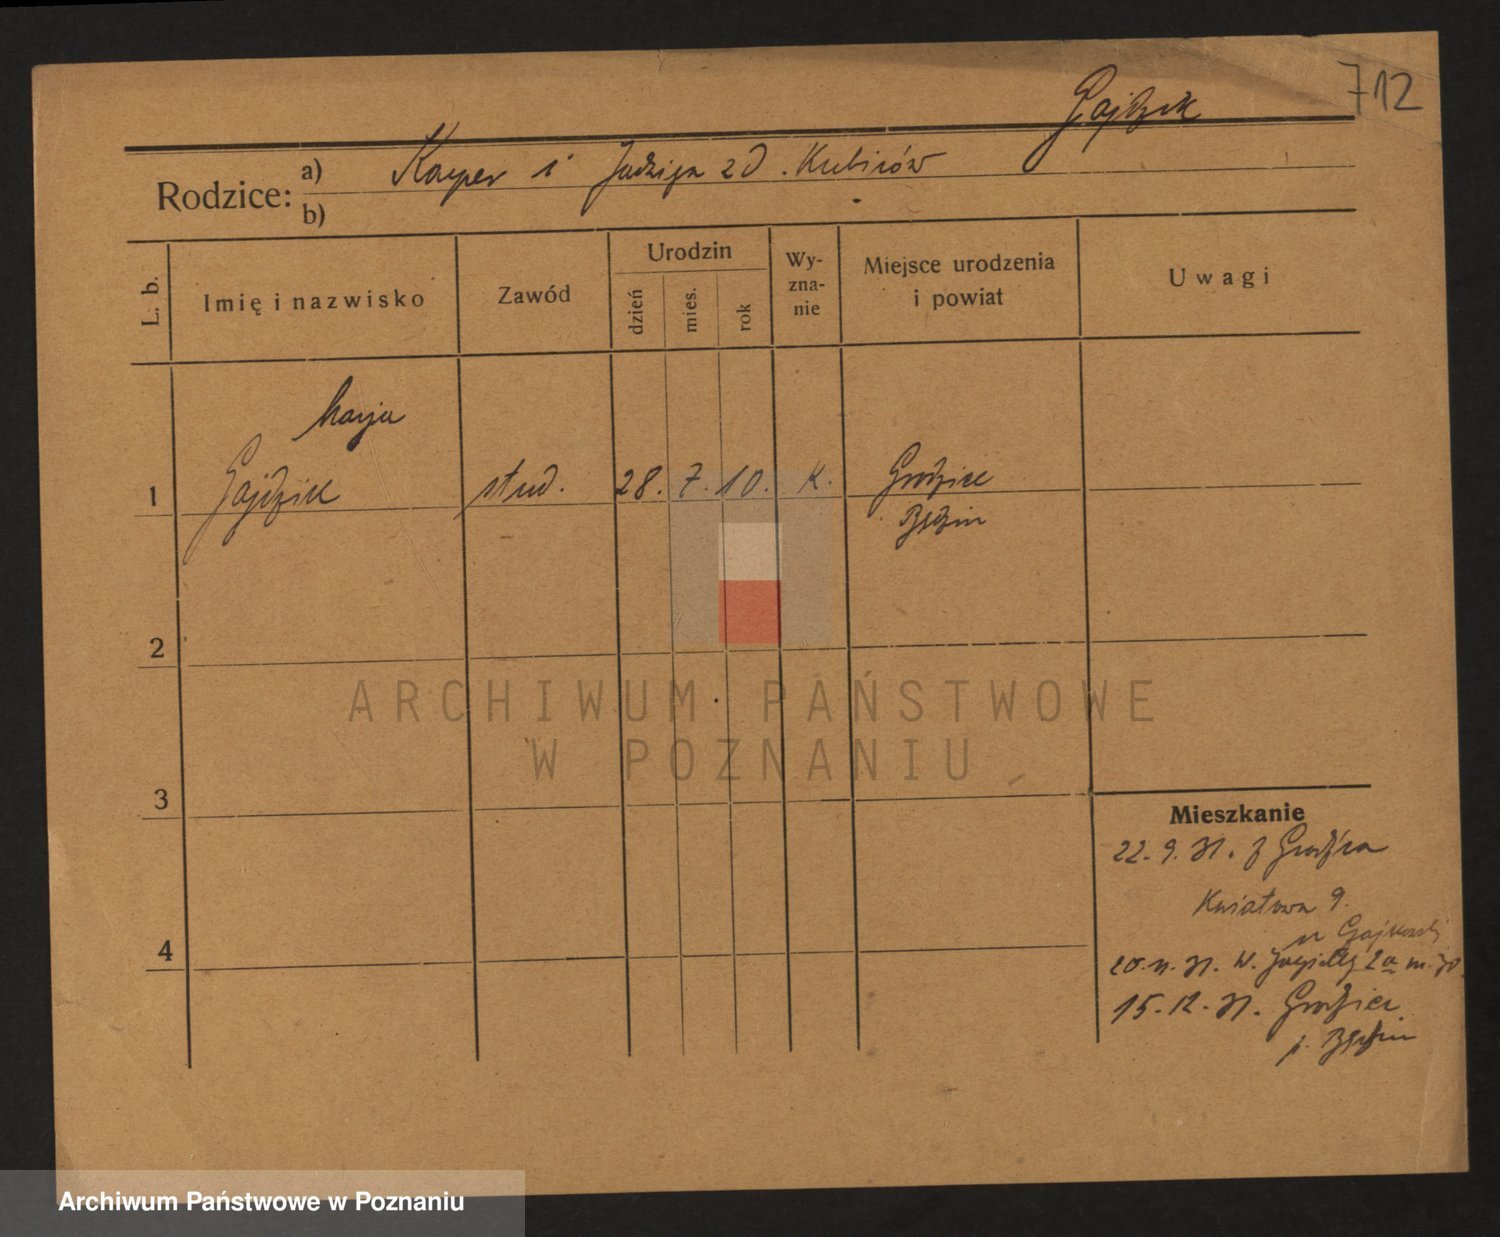 712
Gajdzik
Rodzice:
a) Kacper i Jadwiga z d. Kubiców
b)
L. b.
Imię i nazwisko
Zawód
Urodzin
dzień
mies.
rok
Wy-
zna-
nie
Miejsce urodzenia
i powiat
Uwagi
Marja
1 Gajdzik stud. 28. 7. 10. K. Grodziec
Będzin
2
ARCHIWUM PAŃSTWOWE
W POZNANIU
3
4
Mieszkanie
22. 9. 31. z Grodźca
Kwiatowa 9.
u Gajkowskiej
20. 11. 31. W. Jagiełły 2a m. 30.
15. 12. 31. Grodziec
p. Będzin
Archiwum Państwowe w Poznaniu